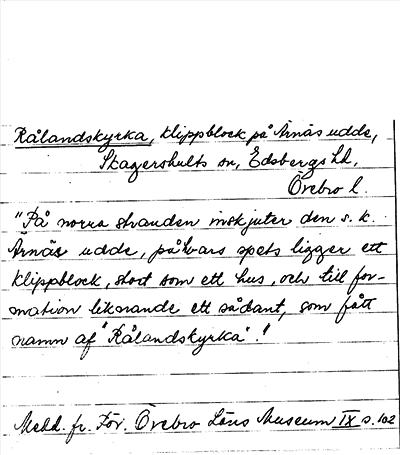 Rålandskyrka, klippblock på Årnäs udde,
Skagershults sn, Edsbergs hd,
Örebro l.
"På norra stranden inskjuter den s. k.
Årnäs udde, på hvars spets ligger ett
klippblock, stort som ett hus, och till for-
mation liknande ett sådant, som fått
namn af "Rålandskyrka"."
Medd. fr. För. Örebro Läns Museum IX s. 102